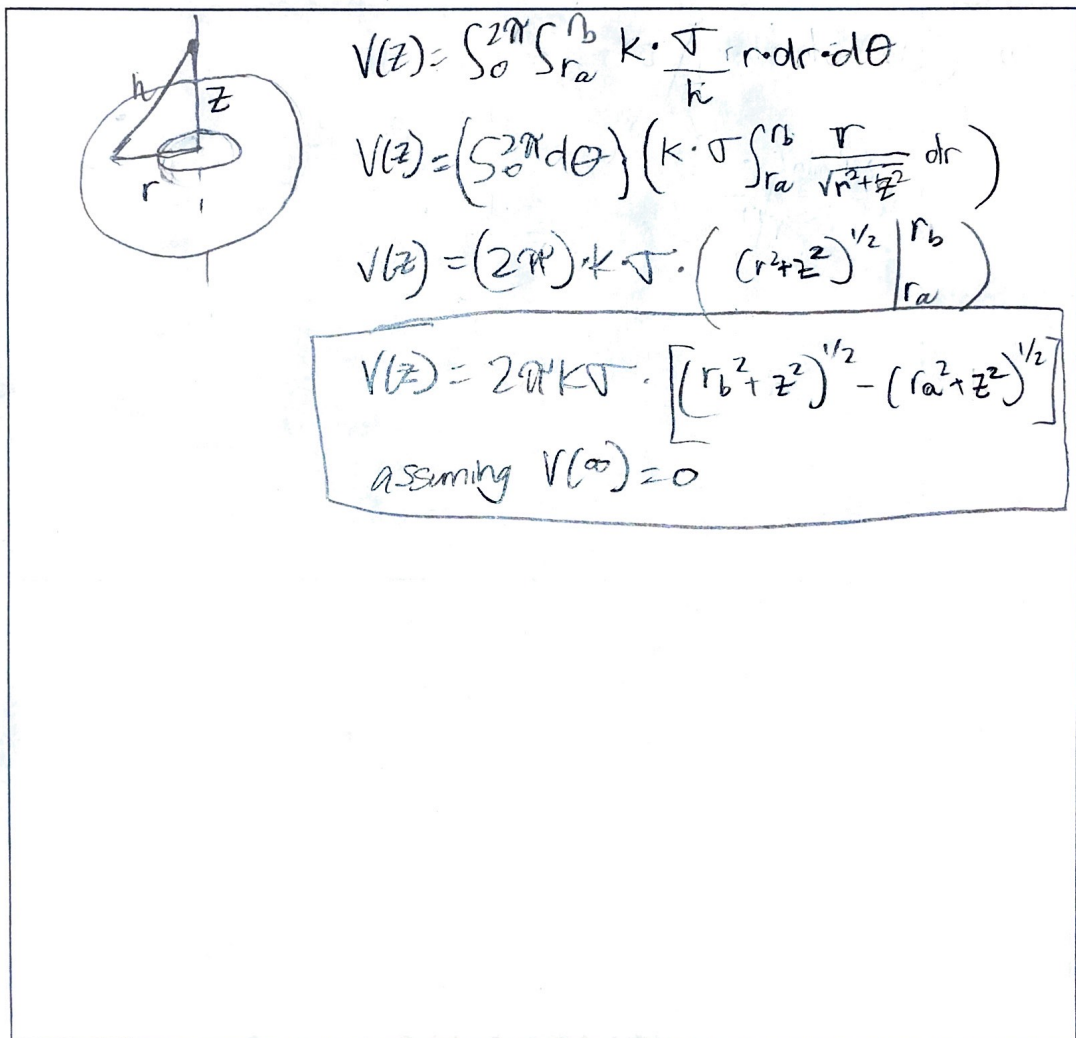 h
z
r
V(z) = ∫₀^2π ∫_ra^rb k · σ/h r·dr·dθ
V(z) = (∫₀^2π dθ) (k · σ ∫_ra^rb r/√(r²+z²) dr)
V(z) = (2π)·k·σ·( (r²+z²)^1/2 |_ra^rb )
V(z) = 2πkσ · [(rb² + z²)^1/2 - (ra² + z²)^1/2]
assuming V(∞) = 0